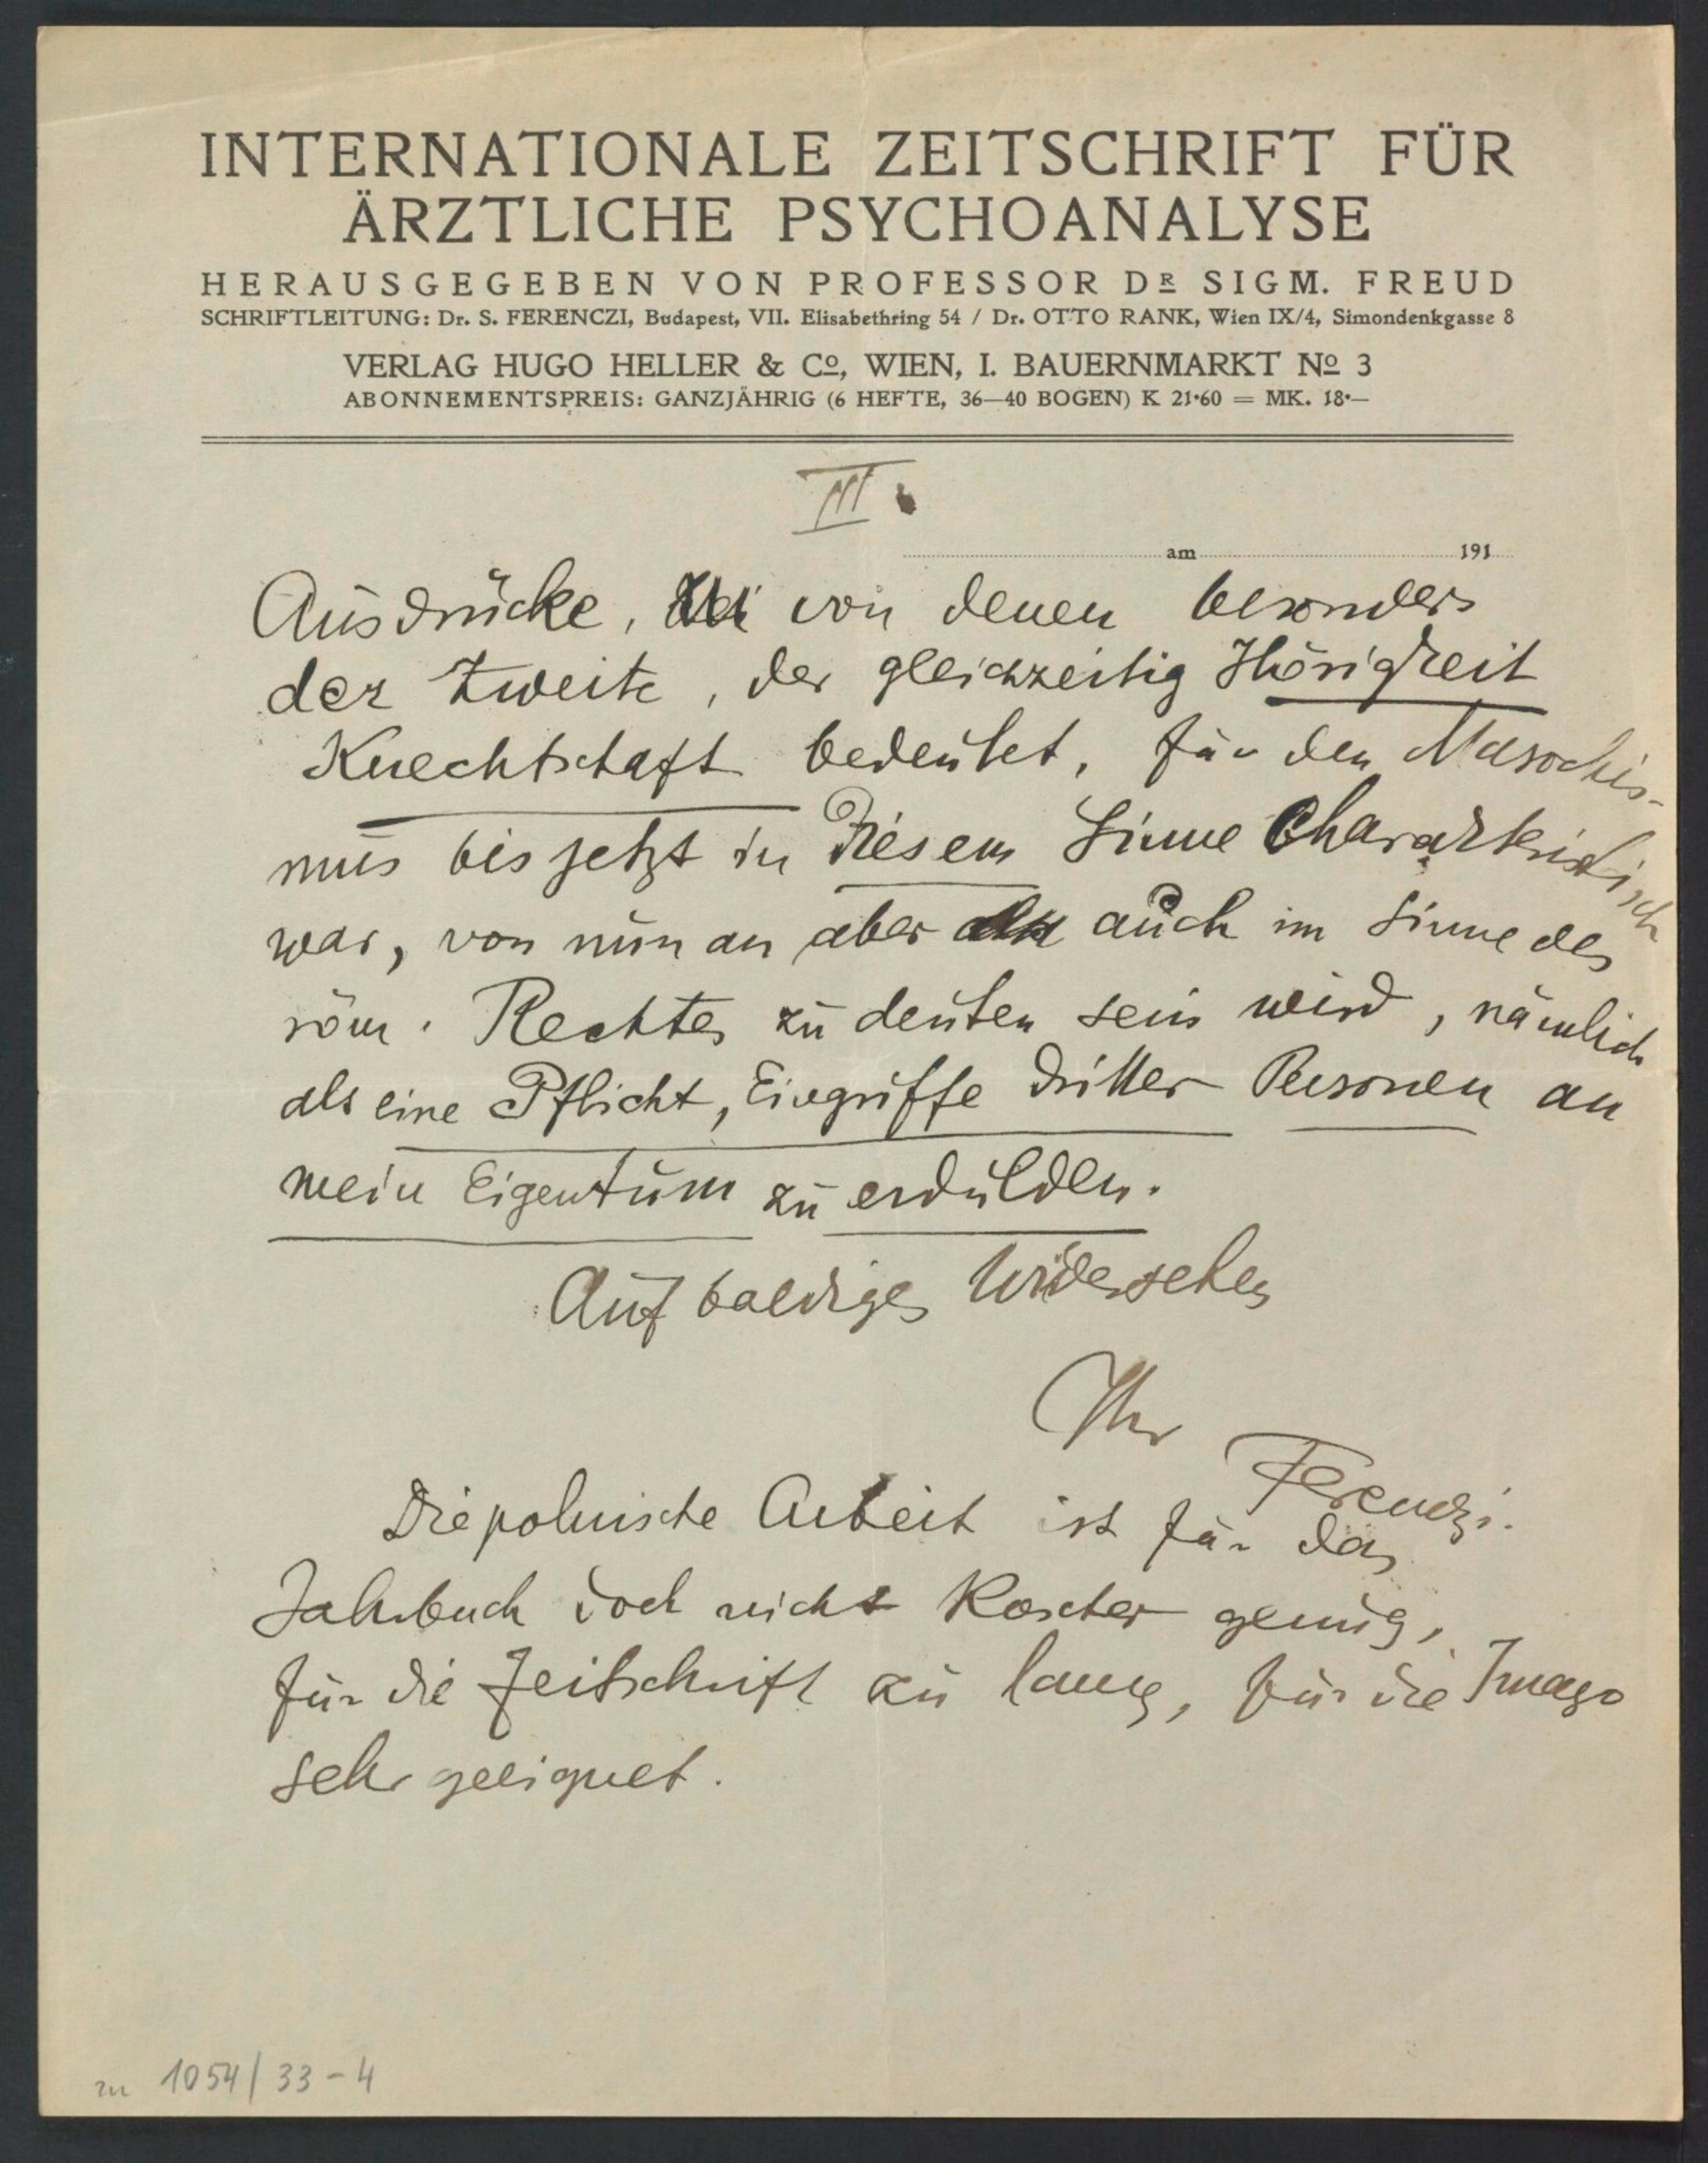 INTERNATIONALE ZEITSCHRIFT FÜR
ÄRZTLICHE PSYCHOANALYSE
HERAUSGEGEBEN VON PROFESSOR DR SIGM. FREUD
SCHRIFTLEITUNG: Dr. S. FERENCZI, Budapest, VII. Elisabethring 54 / Dr. OTTO RANK, Wien IX/4, Simondenkgasse 8
VERLAG HUGO HELLER & Co, WIEN, I. BAUERNMARKT No 3
ABONNEMENTSPREIS: GANZJÄHRIG (6 HEFTE, 36—40 BOGEN) K 21·60 = MK. 18·—
III.
am 191
Ausdrücke, von denen besonders
der Zweite, der gleichzeitig Hörigkeit
Knechtschaft bedeutet, für den Masochis-
mus bis jetzt in diesem Sinne Charakteristisch
war, von nun an aber auch im Sinne des
röm. Rechtes zu deuten sein wird, nämlich
als eine Pflicht, Eingriffe dritter Personen an
mein Eigentum zu erdulden.
Auf baldiges Wiedersehen
Ihr
Ferenczi.
Die polnische Arbeit ist für das
Jahrbuch doch nicht Koscher genug,
für die Zeitschrift zu lang, für die Imago
sehr geeignet.
zu 1054/33-4